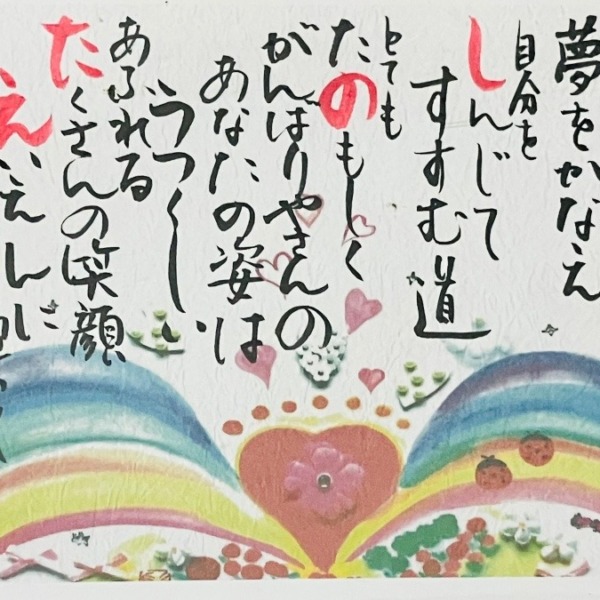 夢をかなえ
自分を
しんじて
すすむ道
とても
たのもしく
がんばりやさんの
あなたの姿は
うつくしい
あふれる
たくさんの笑顔
えいえんに